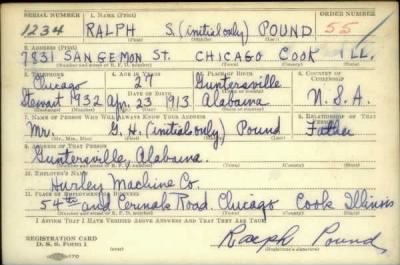 SERIAL NUMBER 1. NAME (Print) ORDER NUMBER
1234 RALPH S. (initial only) POUND 55
(First) (Middle) (Last)
2. ADDRESS (Print)
7831 SANGEMON ST. CHICAGO COOK ILL.
(Number and street or R. F. D. number) (Town) (County) (State)
3. TELEPHONE 4. AGE IN YEARS 5. PLACE OF BIRTH 6. COUNTRY OF CITIZENSHIP
Chicago 27 Guntersville
DATE OF BIRTH
Stewart 1932 Apr. 23, 1913 Alabama U.S.A.
7. NAME OF PERSON WHO WILL ALWAYS KNOW YOUR ADDRESS 8. RELATIONSHIP OF THAT PERSON
Mr. G. H. (initials only) Pound Father
(Mr., Mrs., Miss) (First) (Middle) (Last)
9. ADDRESS OF THAT PERSON
Guntersville, Alabama.
(Number and street or R. F. D. number) (Town) (County) (State)
10. EMPLOYER'S NAME
Hurley Machine Co.
11. PLACE OF EMPLOYMENT OR BUSINESS
54th and Cermak Road. Chicago Cook Illinois
(Number and street or R. F. D. number) (Town) (County) (State)
I AFFIRM THAT I HAVE VERIFIED ABOVE ANSWERS AND THAT THEY ARE TRUE.
REGISTRATION CARD
D. S. S. FORM 1
Ralph Pound
(Registrant's signature)